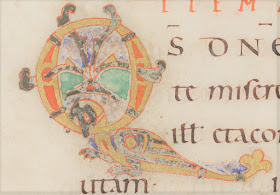 ITEM A
Q
S DNE
te misere
ill etacon
utam.